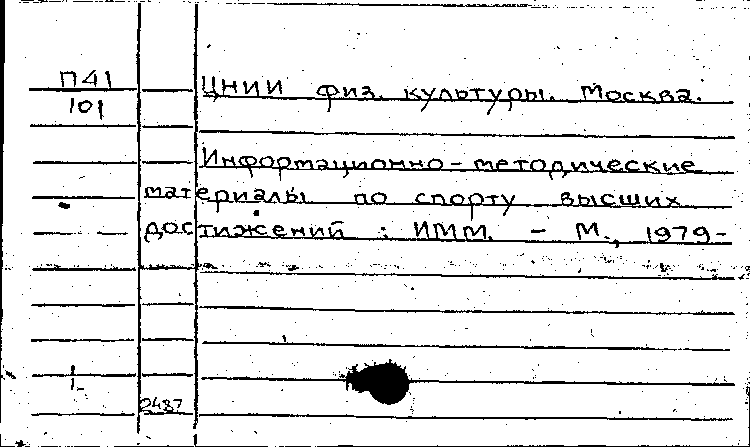 П41 ЦНИИ физ. культуры. Москва.
101
Информационно-методические
материалы по спорту высших
достижений : ИММ. - М., 1979-
1-
2487